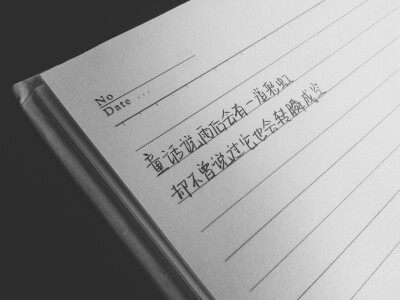 No
Date ...
童话说雨后会有一道彩虹
却不曾说过它也会转瞬成空